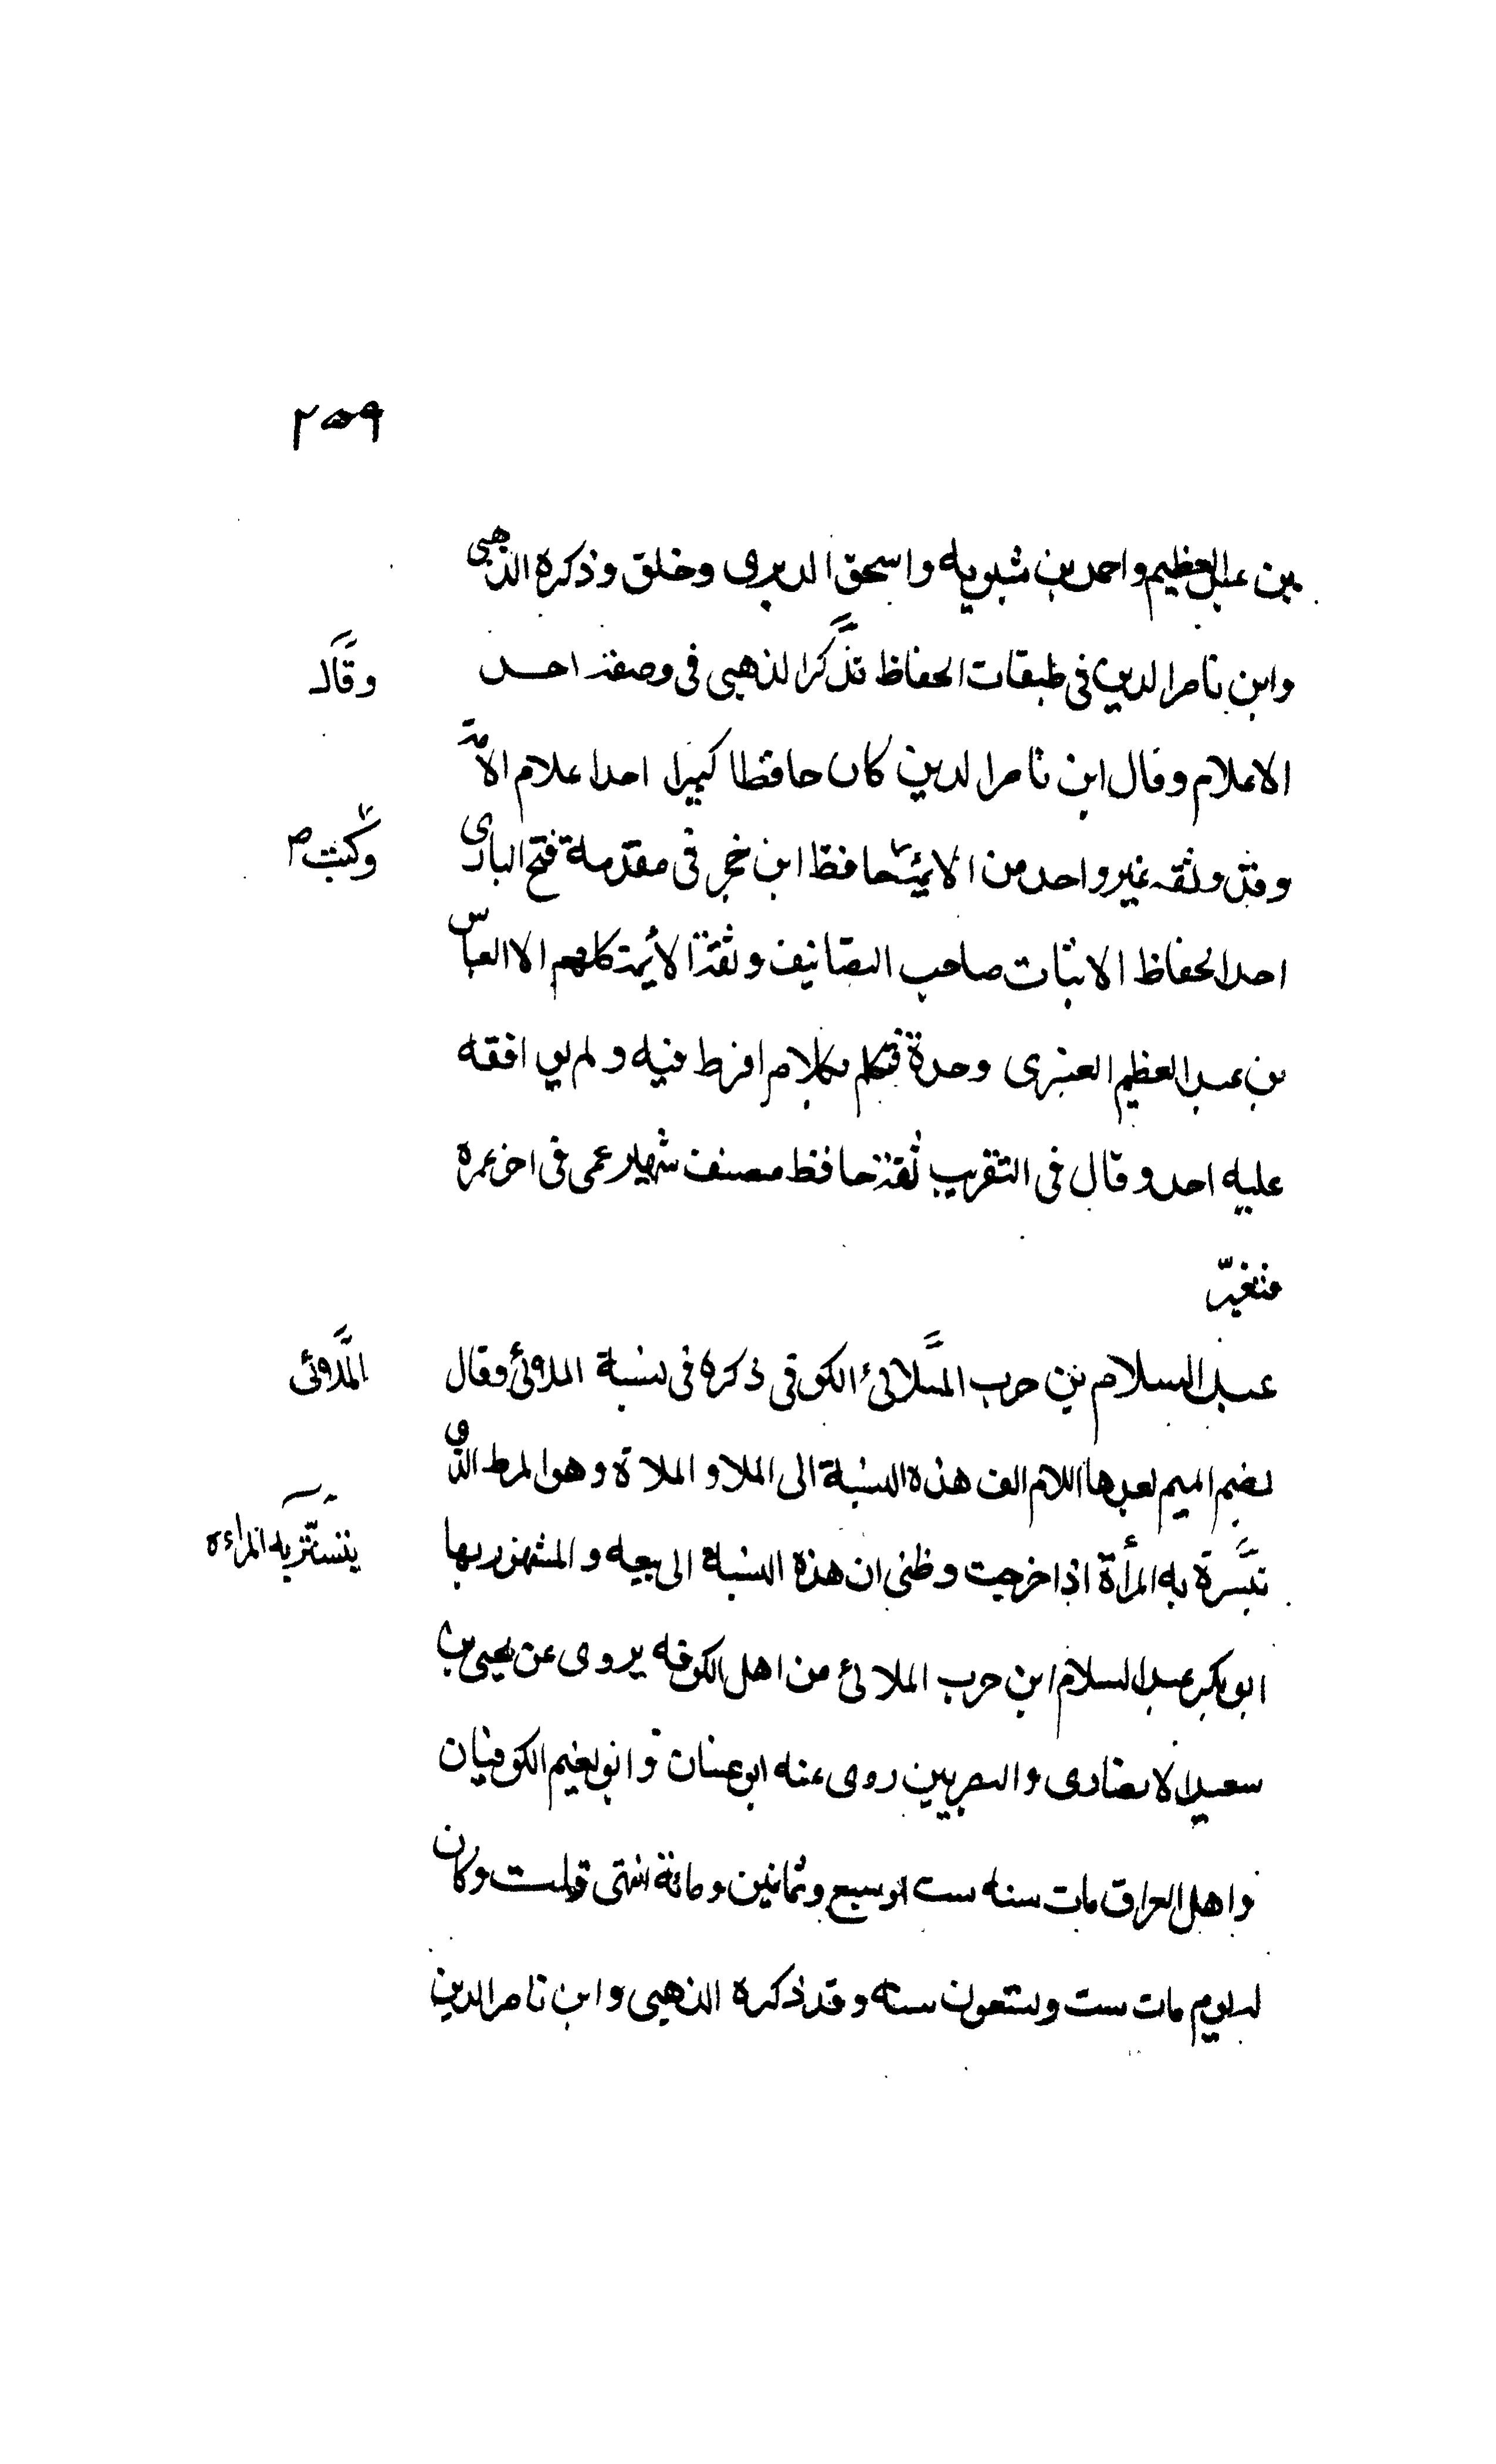 ٢٥٩
بن عبد العظيم واحمد بن شبويه واسحق الدبرى وخلق وذكره الذهبى
وابن ناصر الدين فى طبقات الحفاظ تذكر الذهبى فى وصفة احد
وقال
الاعلام وقال ابن ناصر الدين كان حافظا كبيرا احد اعلام الامة
وقد وثقه غير واحد من الائمة حافظ ابن حجر فى مقدمة فتح البارى
وكتب
احد الحفاظ الاثبات صاحب التصانيف وثقة الأئمة كلهم الا العباس
بن عبد العظيم العنبرى وحدة فتكلم بكلام افرط فيه ولم يوافقه
عليه احد وقال فى التقريب ثقة حافظ مصنف شهير عمى فى اخر عمره
فتغيّر
عبد السلام بن حرب الملائى الكوفى ذكره فى نسبة الملائى وقال
الملائى
بضم الميم بعدها اللام الف هذه النسبة الى الملا والملاة وهو المرط الذى
تسّترة به المرأة اذا خرجت وظنى ان هذه النسبة الى بيعه والمشهور بها
يتستّر به المراءة
ابو بكر عبد السلام ابن حرب الملائى من اهل الكوفه يروى عن يحيى بن
سعيد الانصارى والبصريين روى عنه ابو عسان وابو نعيم الكوفيان
واهل العراق مات سنه ست او سبع وثمانين ومائة انتهى قلت وكان
له يوم مات ست وستعون سنة وقد ذكره الذهبى وابن ناصر الدين